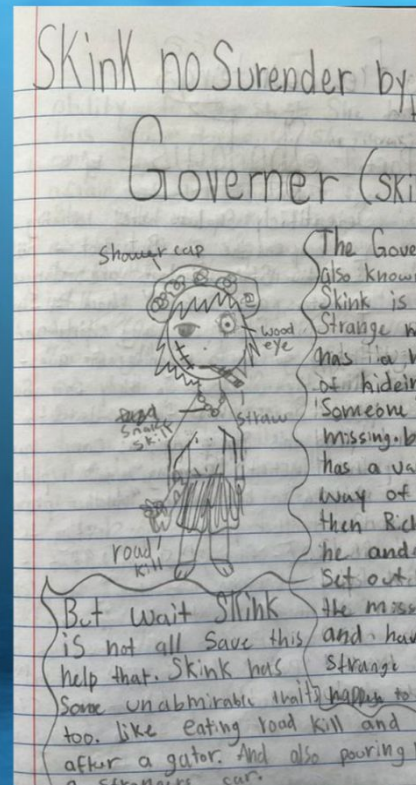 Skink no Surender by,
Governer (ski
Shower cap
wood
eye
straw
snake
road
kill
The Gove
also know
Skink is
Strange
has a
of hidein
Someone
missing. b
has a va
way of
then Rich
he and
Set out.
the miss
and hav
strange
happen to
But wait Skink
is not all Save this
help that. Skink has
Some unabmirable traits
too. like eating road kill and
after a gator. And also pouring
a strangers car.